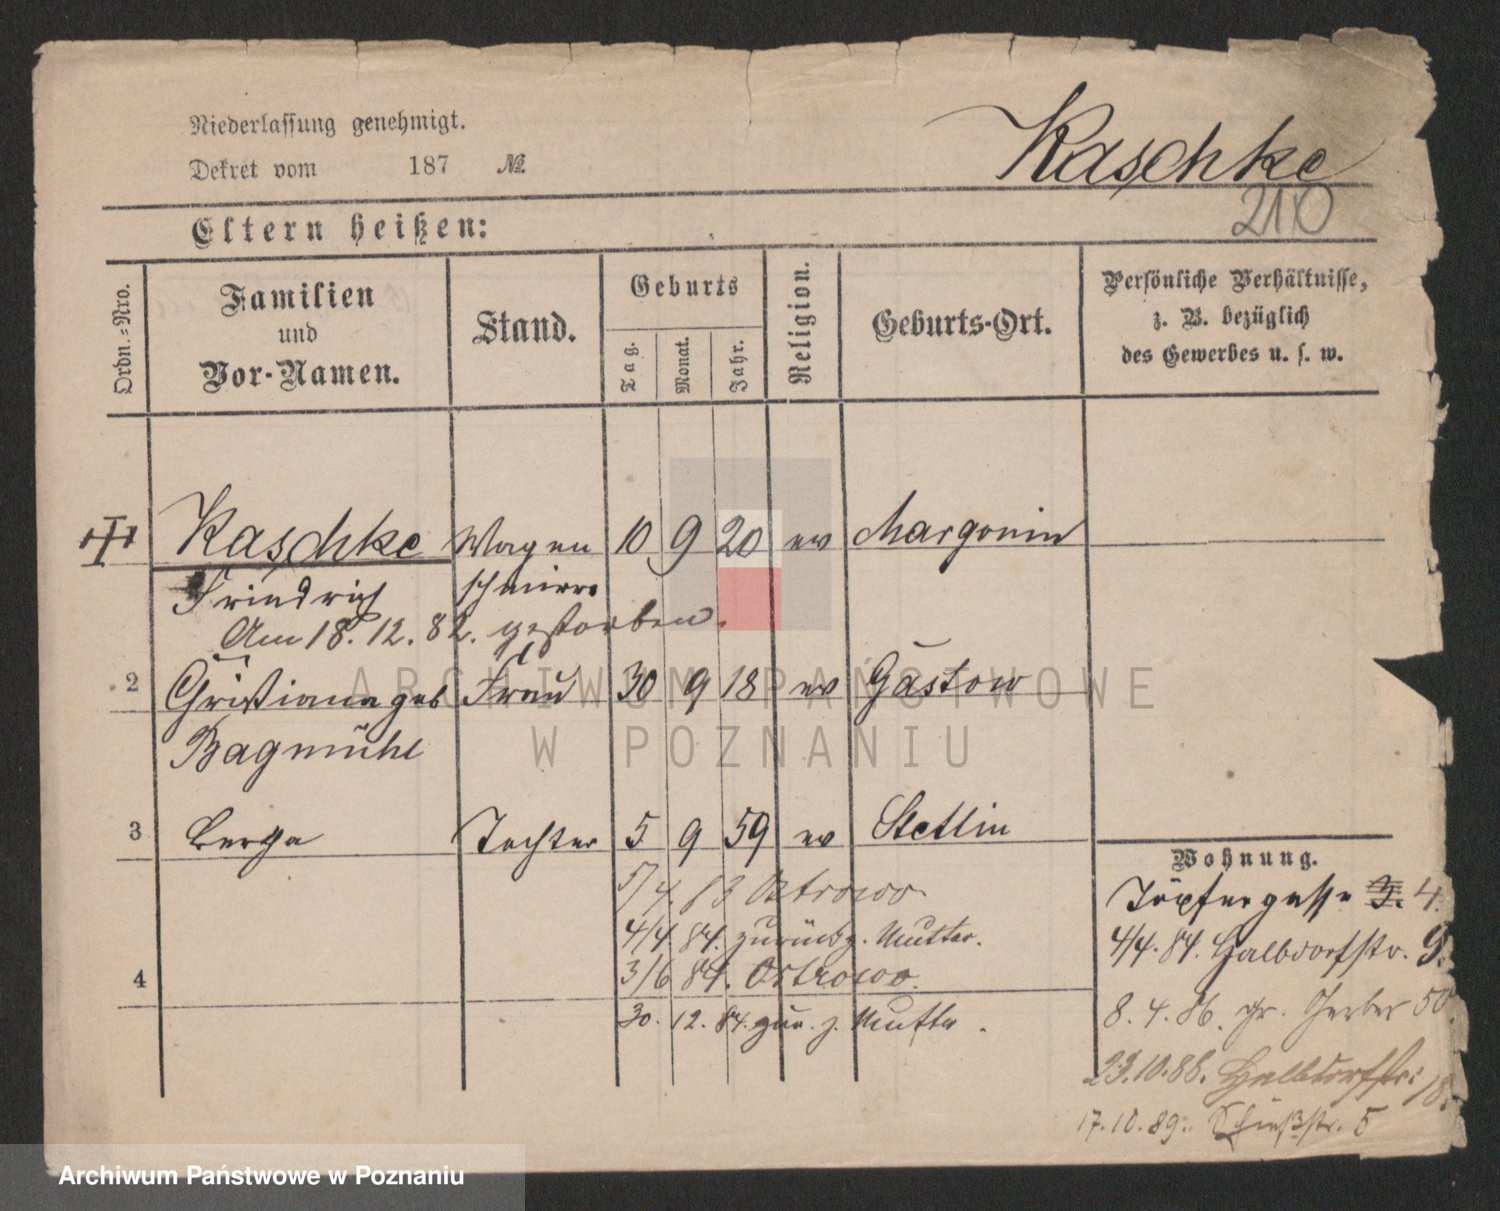 Niederlassung genehmigt.
Dekret vom 187 №
Kaschke
210
Eltern heißen:
Ordn.-Nro.
Familien
und
Vor-Namen.
Stand.
Geburts
Tag.
Monat.
Jahr.
Religion.
Geburts-Ort.
Persönliche Verhältnisse,
z. B. bezüglich
des Gewerbes u. s. w.
Kaschke Wagen 10 9 20 ev Margonin
Friedrich schmierer
Am 18. 12. 82. gestorben.
2 Christiane geb Frau 30 9 18 ev Gastow
Bagmühl
3 Tochter 5 9 59 ev Stettin
5/4. 83 Ostrowo
4/4. 84. zurück z. Mutter.
4 3/6 84. Ostrowo.
30. 12. 84. zur. z. Mutter.
Wohnung.
Töpfergasse 3. 4.
4/4. 84. Halbdorfstr. 9.
8. 4. 86. gr. Gerber 50.
23.10.88. Halbdorfstr: 18.
17.10.89. Schießstr. 5
ARCHIWUM PAŃSTWOWE
W POZNANIU
Archiwum Państwowe w Poznaniu